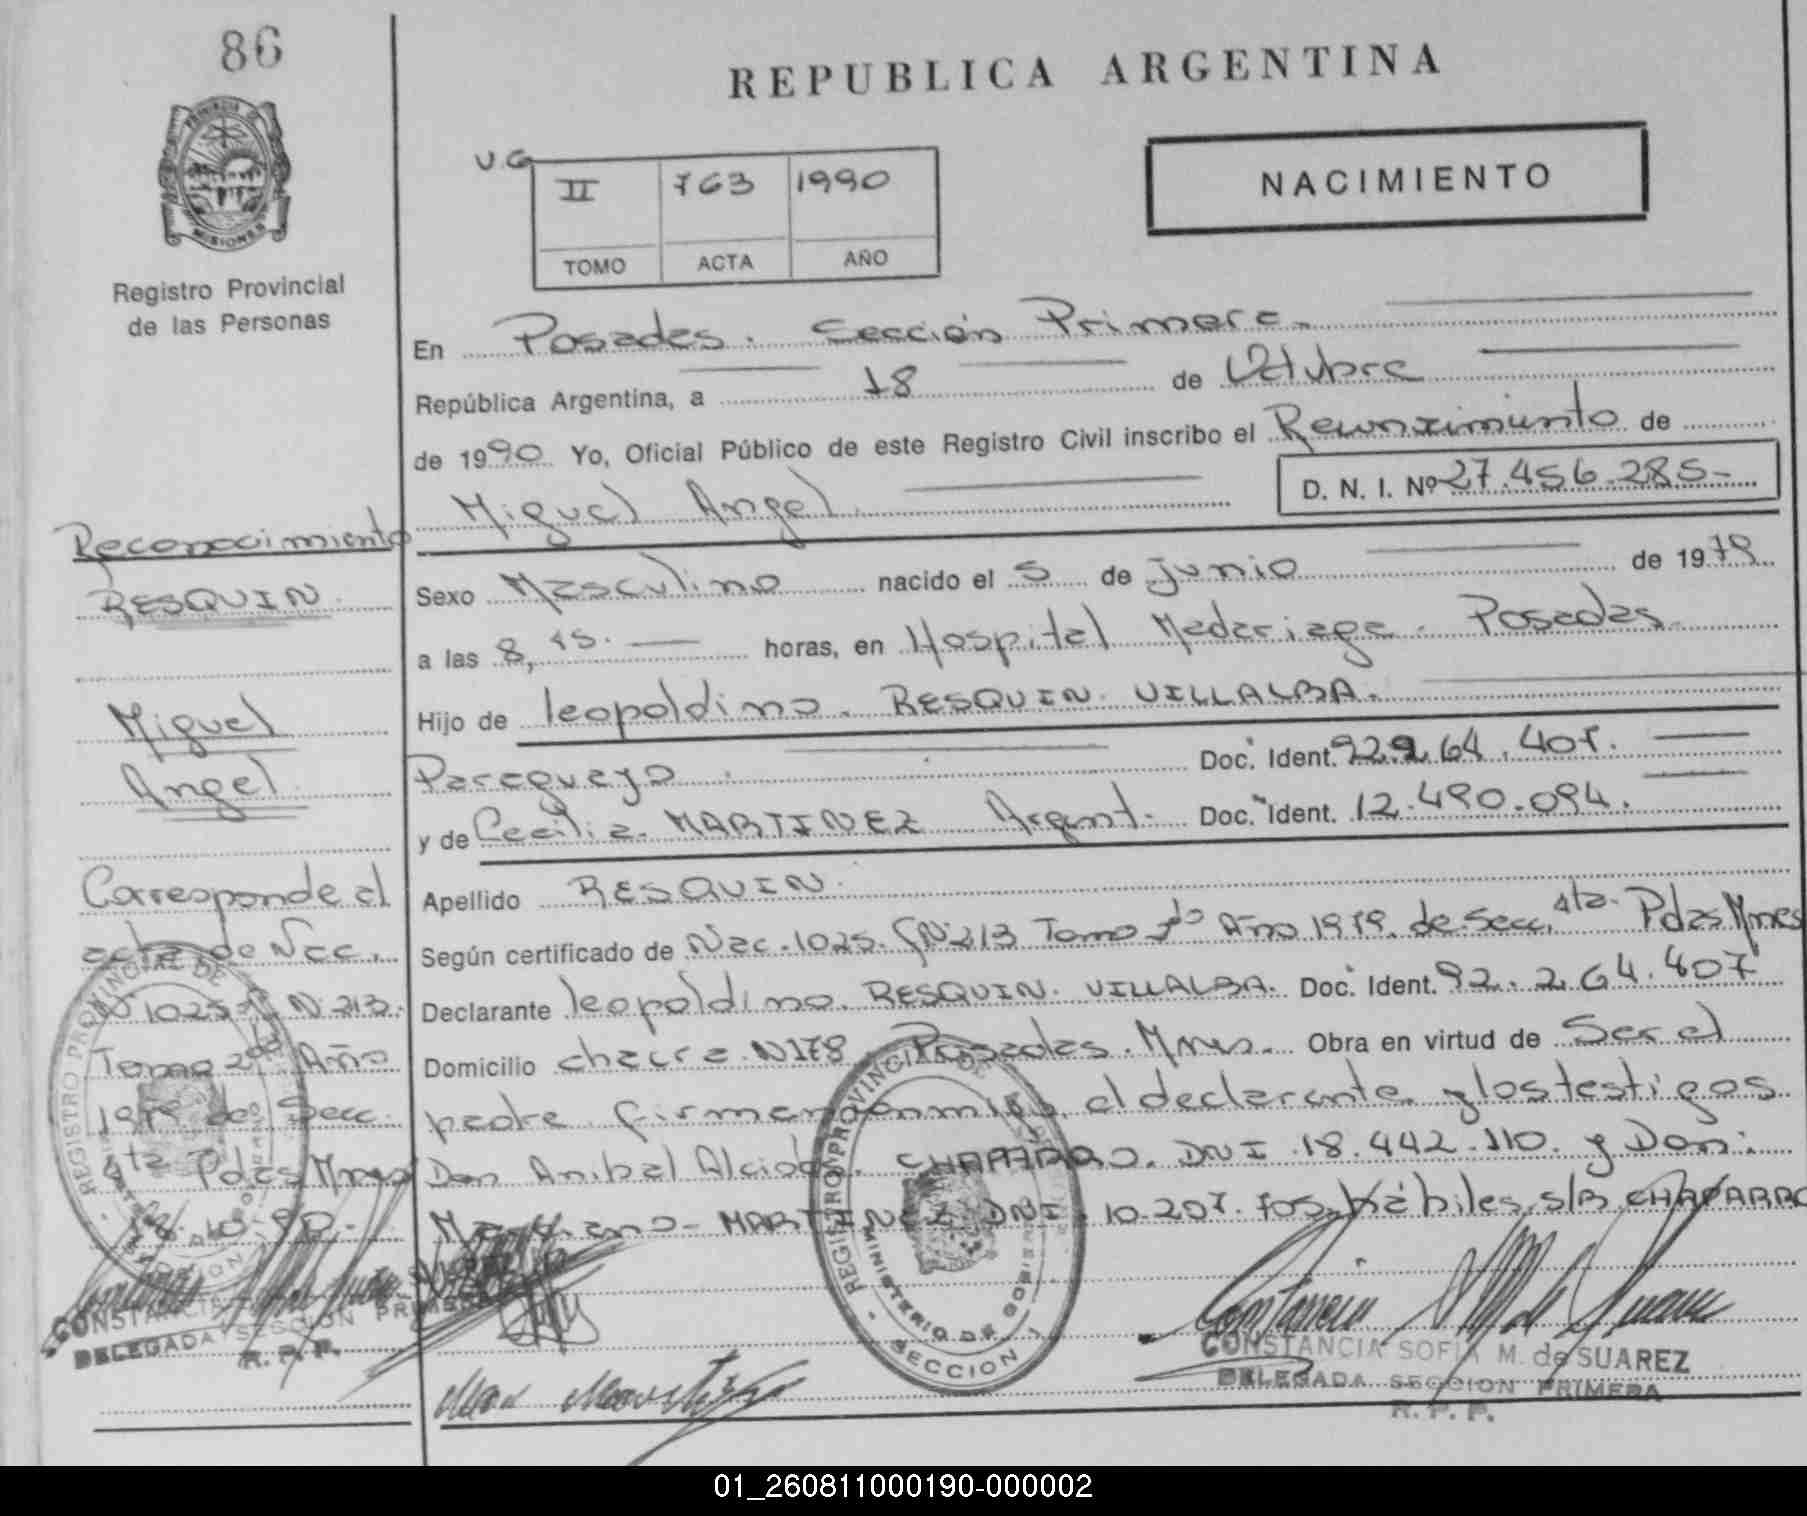 86
REPUBLICA ARGENTINA
PROVINCIA DE
MISIONES
Registro Provincial
de las Personas
V.G
II 763 1990
TOMO ACTA AÑO
NACIMIENTO
En Posadas. Sección Primera.
República Argentina, a 18 de Octubre
de 1990 Yo, Oficial Público de este Registro Civil inscribo el Reconocimiento de
Miguel Angel D. N. I. Nº 27.456.285-
Sexo Masculino nacido el 5 de junio de 1979
a las 8,45. horas, en Hospital Madariaga. Posadas
Hijo de Leopoldino. RESQUIN VILLALBA.
Paraguayo. Doc. Ident. 92.264.407.
y de Cecilia MARTINEZ Argent. Doc. Ident. 12.490.094.
Apellido RESQUIN.
Según certificado de Nac. 1025. Fº Nº 213 Tomo 2do Año 1979. de Secc. 4ta. Pdas Mnes
Declarante Leopoldino. RESQUIN. VILLALBA. Doc. Ident. 92.264.407
Domicilio chacra Nº 178 Posadas. Mnes. Obra en virtud de Ser el
padre firman conmigo el declarante y los testigos
Don Anibal Alcides. CHAPARRO. DNI 18.442.110. y Don:
MARTINEZ DNI. 10.207.705. Hábiles, s/R CHAPARRO
Reconocimiento
RESQUIN
Miguel
Angel
Corresponde al
acta de Nac.
Nº 1025 Fº Nº 213.
Tomo 2do Año
1979 de Secc.
4ta Pdas Mnes
18-10-90.-
REGISTRO PROVINCIAL DE
SECCION
CONSTANCIA
DELEGADA SECCION PRIMERA
R. P. P.
REGISTRO PROVINCIAL DE
MINISTERIO DE GOBIERNO
SECCION 1
CONSTANCIA SOFIA M. de SUAREZ
DELEGADA SECCION PRIMERA
R. P. P.
01_260811000190-000002